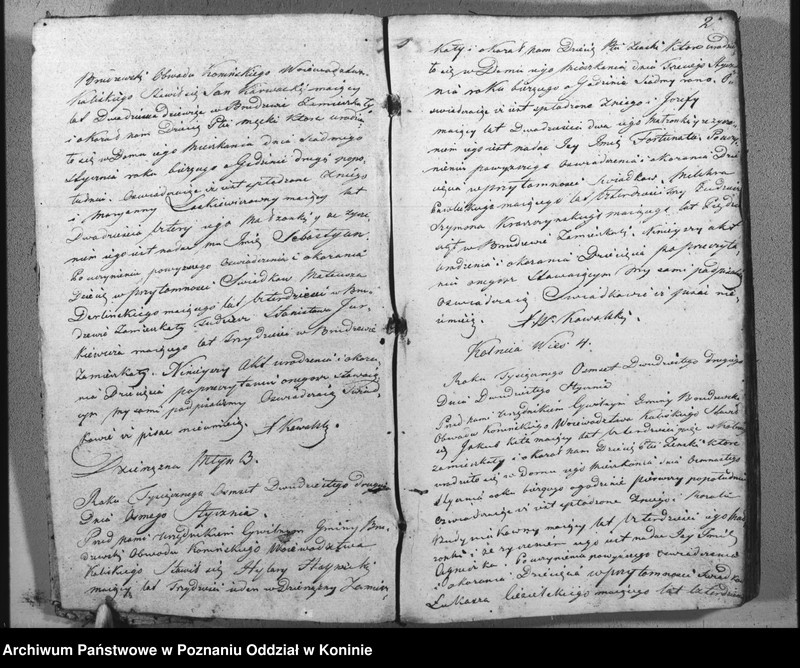 Obwodu Konińskiego Województwa
Kaliskiego Stawił się Jan maiący
lat Dwadzieścia dziewięć w Brudzewie Zamieszkały
i okazał nam Dziecię Płci męzki które urodzi
ło się w Domu iego Mieszkania dnia Siódmego
Stycznia roku bieżącego o Godzinie drugiey popo
łudniu. Oświadczaiąc iż iest spłodzone z niego
i Maryanny maiący lat
Dwadzieścia cztery iego Małżonki, że życze
niem iego iest nadać mu Imię Sebastyan
Po uczynieniu powyższego Oświadczenia i okazania
Dziecię w przytomności Świadków Mateusza
maiącego lat czterdzieści w Bru
dzewie Zamieszkały Tudzież Stanisława Jur
kiewicza maiącego lat Trzydzieści w Brudzewie
Zamieszkały. Ninieyszy Akt urodzenia i okaza
nia Dziecięcia po przeczytaniu onegoż Stawaią
cym my sami podpisaliśmy Oświadczaią Świad
kowie iż pisać nieumieią. A Kowalski.
Młyn 3.
Roku Tysiącznego Osmset Dwudziestego drugiego
Dnia Osmego Stycznia.
Przed nami Urzędnikiem Cywilnym Gminy Bru
dzewski Obwodu Konińskiego Województwa
Kaliskiego Stawił się Hylary
maiący lat Trzydzieści ieden w Zamiesz
2
kały i okazał nam Dziecię Płci Żeński które urodzi
ło się w Domu iego Mieszkania dnia Trzeciego Stycz
nia roku bieżącego o Godzinie Siódmy rano. O
świadczaiąc iż iest spłodzone z niego i Jozefy
maiący lat Dwadzieścia dwa iego Małżonki, że życze
niem iego iest nadać Jey Imię Fortunata. Po uczy
nieniu powyższego Oświadczenia i okazania Dzie
cięcia w przytomności Świadków Melchra
maiącego lat czterdzieści Tudzież
Szymona maiącego lat Pięćdzie
siąt w Brudzewie Zamieszkali. Ninieyszy akt
urodzenia i okazania Dziecięcia po przeczyta
niu onegoż Stawaiącym My sami podpisali
Oświadczaią Świadkowie iż pisać nie
umieią. A.W. Kowalski.
Kolnica Wieś 4.
Roku Tysiącznego Osmset Dwudziestego drugiego
Dnia Dwudziestego Stycznia
Przed nami Urzędnikiem Cywilnym Gminy Brudzewski
Obwodu Konińskiego Województwa Kaliskiego Stawił
się Jakub maiący lat czterdzieści
zamieszkały i okazał nam Dziecię Płci Żeński które
urodziło się w Domu iego Mieszkania dnia
Stycznia roku bieżącego o godzinie pierwszy popołudniu
Oświadczaiąc iż iest spłodzone z niego i Rozalii
maiący lat czterdzieści iego Mał
żonki, i że życzeniem iego iest nadać Jey Imię
Agnieszka. Po uczynieniu powyższego oświadczenia
i okazania Dziecięcia w przytomności Świadków
Łukasza maiącego lat czterdzieści
Archiwum Państwowe w Poznaniu Oddział w Koninie